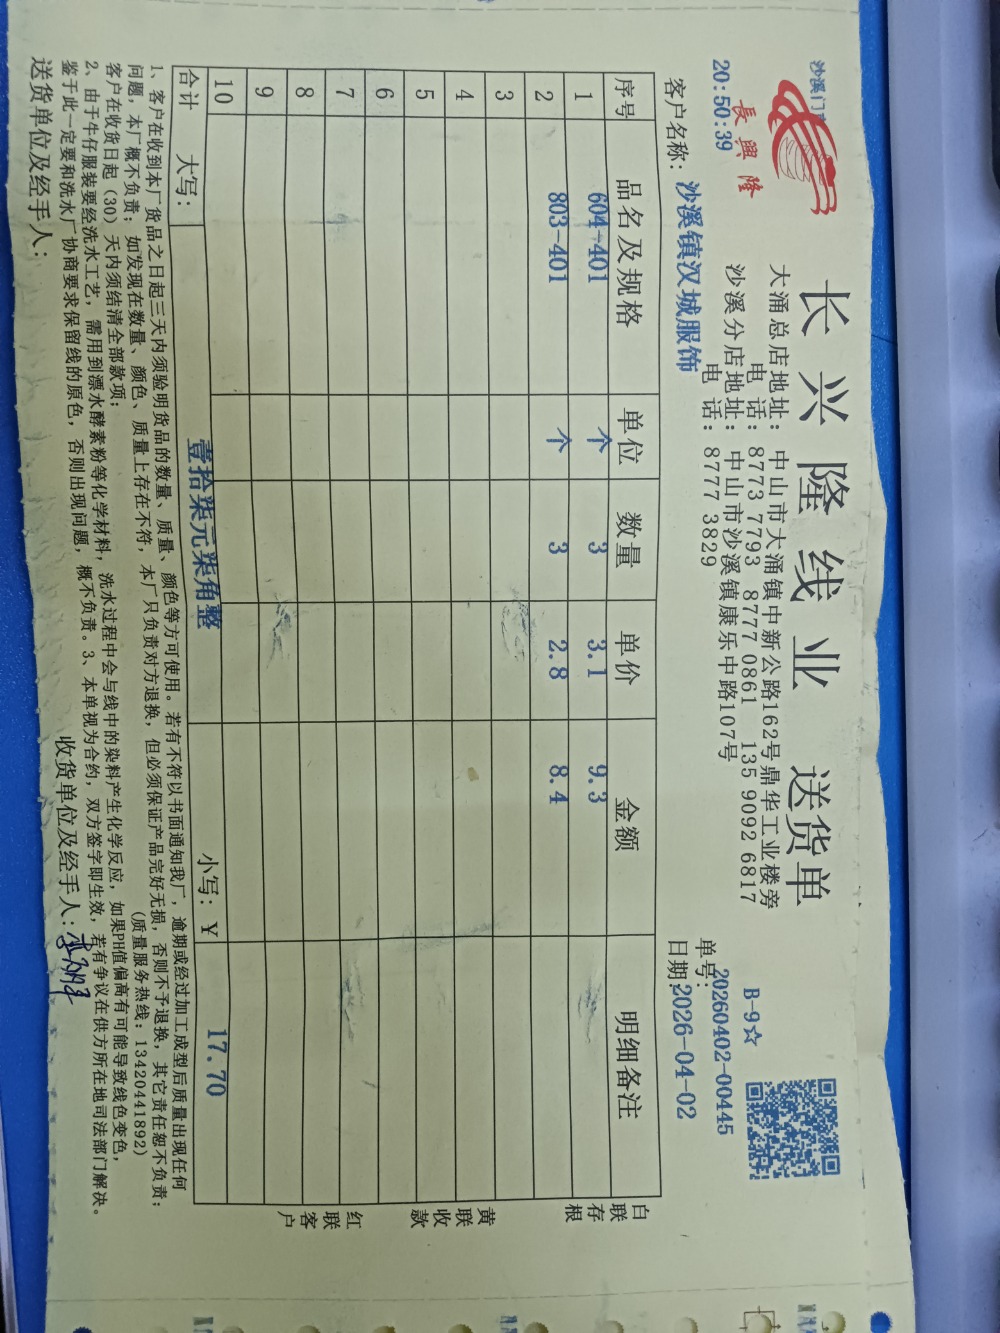 沙溪门
長興隆
长兴隆线业 送货单
20:50:39
大涌总店地址: 中山市大涌镇中新公路162号鼎华工业楼旁
电 话: 8773 7793 8777 0861 135 9092 6817
沙溪分店地址: 中山市沙溪镇康乐中路107号
电 话: 8777 3829
B-9☆
单号: 20260402-00445
客户名称: 沙溪镇汉城服饰
日期: 2026-04-02
序号 品名及规格 单位 数量 单价 金额 明细备注
1 604-401 个 3 3.1 9.3
2 803-401 个 3 2.8 8.4
3
4
5
6
7
8
9
10
合计 大写: 壹拾柒元柒角整 小写: ¥ 17.70
白联存根
黄联收款
红联客户
1、客户在收到本厂货品之日起三天内须验明货品的数量、质量、颜色等方可使用。若有不符以书面通知我厂, 逾期或经过加工成型后质量出现任何
问题, 本厂概不负责; 如发现在数量、颜色、质量上存在不符, 本厂只负责对方退换, 但必须保证产品完好无损, 否则不予退换, 其它责任恕不负责;
客户在收货日起 (30) 天内须结清全部款项; (质量服务热线: 13420441892)
2、由于牛仔服装要经洗水工艺, 需用到漂水酵素粉等化学材料, 洗水过程中会与线中的染料产生化学反应, 如果PH值偏高有可能导致线色变色,
鉴于此一定要和洗水厂协商要求保留线的原色, 否则出现问题, 概不负责。3、本单视为合约, 双方签字即生效, 若有争议在供方所在地司法部门解决。
送货单位及经手人: 收货单位及经手人: